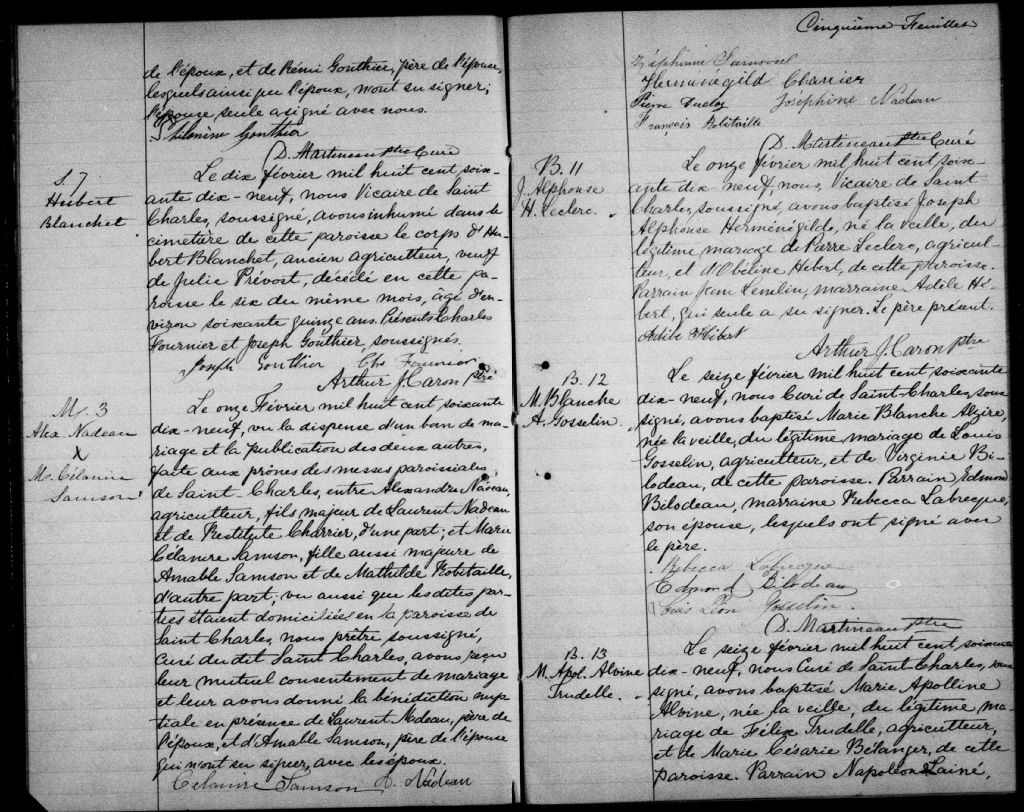 de l'époux, et de Rémi Gouthier, père de l'épouse,
lesquels ainsi que l'époux, n'ont su signer;
l'épouse seule a signé avec nous.
Philomène Gouthier
D. Martineau Ptre Curé
S. 7
Hubert
Blanchet
Le dix février mil huit cent soix-
ante dix-neuf, nous Vicaire de Saint
Charles, soussigné, avons inhumé dans le
cimetière de cette paroisse le corps d'Hu-
bert Blanchet, ancien agriculteur, veuf
de Julie Prévost, décédé en cette pa-
roisse le six du même mois, âgé d'en-
viron soixante quinze ans. Présents Charles
Fournier et Joseph Gouthier, soussignés.
Joseph Gouthier Chs Fournier
Arthur J. Caron Ptre
M. 3
Alex Nadeau
X
M. Célanire
Samson
Le onze Février mil huit cent soixante
dix-neuf, vu la dispense d'un ban de ma-
riage et la publication des deux autres,
faite aux prônes des messes paroissiales
de Saint-Charles, entre Alexandre Nadeau,
agriculteur, fils majeur de Laurent Nadeau
et de Restitute Charrier, d'une part; et Marie
Célanire Samson, fille aussi majeure de
Amable Samson et de Mathilde Robitaille,
d'autre part; vu aussi que les dites par-
ties étaient domiciliées en la paroisse de
Saint Charles, nous prêtre soussigné,
curé du dit Saint Charles, avons reçu
leur mutuel consentement de mariage
et leur avons donné la bénédiction nup-
tiale en présence de Laurent Nadeau, père de
l'époux, et d'Amable Samson, père de l'épouse
qui n'ont su signer, avec les époux.
Célanire Samson A. Nadeau
Cinquième Feuillet
Hermenegild Charrier
Joséphine Nadeau
François
D. Martineau Ptre Curé
B. 11
J. Alphonse
H. Leclerc.
Le onze février mil huit cent soix-
ante dix-neuf, nous, Vicaire de Saint
Charles, soussigné, avons baptisé Joseph
Alphonse Herménégilde, né la veille, du
légitime mariage de Pierre Leclerc, agricul-
teur, et d'Obéline Hebert, de cette paroisse.
Parrain Jean Lemelin, marraine Adèle Hé-
bert, qui seule a su signer. Le père présent.
Adèle Hébert
Arthur J. Caron Ptre
B. 12
M. Blanche
A. Gosselin.
Le seize février mil huit cent soixante
dix-neuf, nous Curé de Saint-Charles, sous-
signé, avons baptisé Marie Blanche Alzire,
née la veille, du légitime mariage de Louis
Gosselin, agriculteur, et de Virginie Bi-
lodeau, de cette paroisse. Parrain Edmond
Bilodeau, marraine Rebecca Labrecque,
son épouse, lesquels ont signé avec
le père.
Rebecca Labrecque
Edmond Bilodeau
Louis Léon Gosselin.
D. Martineau Ptre
B. 13
M. Apol. Alvine
Trudelle.
Le seize février mil huit cent soixante
dix-neuf, nous Curé de Saint-Charles, sous
signé, avons baptisé Marie Apolline
Alvine, née la veille, du légitime ma-
riage de Félix Trudelle, agriculteur,
et de Marie Césarie Bélanger, de cette
paroisse. Parrain Napoléon Lainé,